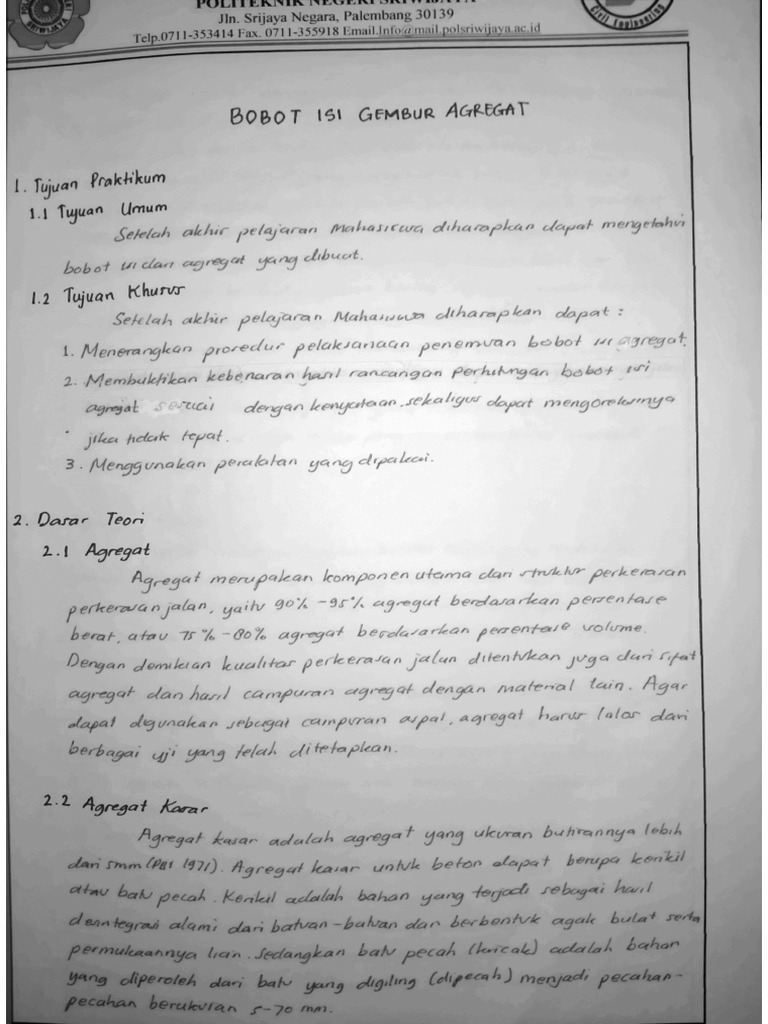 POLITEKNIK NEGERI SRIWIJAYA
Jln. Srijaya Negara, Palembang 30139
Telp.0711-353414 Fax. 0711-355918 Email.Info@mail.polsriwijaya.ac.id
SRIWIJAYA
Civil Engineering
BOBOT ISI GEMBUR AGREGAT
1. Tujuan Praktikum
1.1 Tujuan Umum
Setelah akhir pelajaran Mahasiswa diharapkan dapat mengetahui
bobot isi dari agregat yang dibuat.
1.2 Tujuan Khusus
Setelah akhir pelajaran Mahasiswa diharapkan dapat :
1. Menerangkan prosedur pelaksanaan penemuan bobot isi agregat.
2. Membuktikan kebenaran hasil rancangan perhitungan bobot isi
agregat sesuai dengan kenyataan, sekaligus dapat mengoreksinya
jika tidak tepat.
3. Menggunakan peralatan yang dipakai.
2. Dasar Teori
2.1 Agregat
Agregat merupakan komponen utama dari struktur perkerasan
perkerasan jalan, yaitu 90% -95% agregat berdasarkan persentase
berat, atau 75% -80% agregat berdasarkan persentase volume.
Dengan demikian kualitas perkerasan jalan ditentukan juga dari sifat
agregat dan hasil campuran agregat dengan material lain. Agar
dapat digunakan sebagai campuran aspal, agregat harus lolos dari
berbagai uji yang telah ditetapkan.
2.2 Agregat Kasar
Agregat kasar adalah agregat yang ukuran butirannya lebih
dari 5mm (PBI 1971). Agregat kasar untuk beton dapat berupa kerikil
atau batu pecah. Kerikil adalah bahan yang terjadi sebagai hasil
desintegrasi alami dari batuan-batuan dan berbentuk agak bulat serta
permukaannya licin. Sedangkan batu pecah (kricak) adalah bahan
yang diperoleh dari batu yang digiling (dipecah) menjadi pecahan-
pecahan berukuran 5-70 mm.